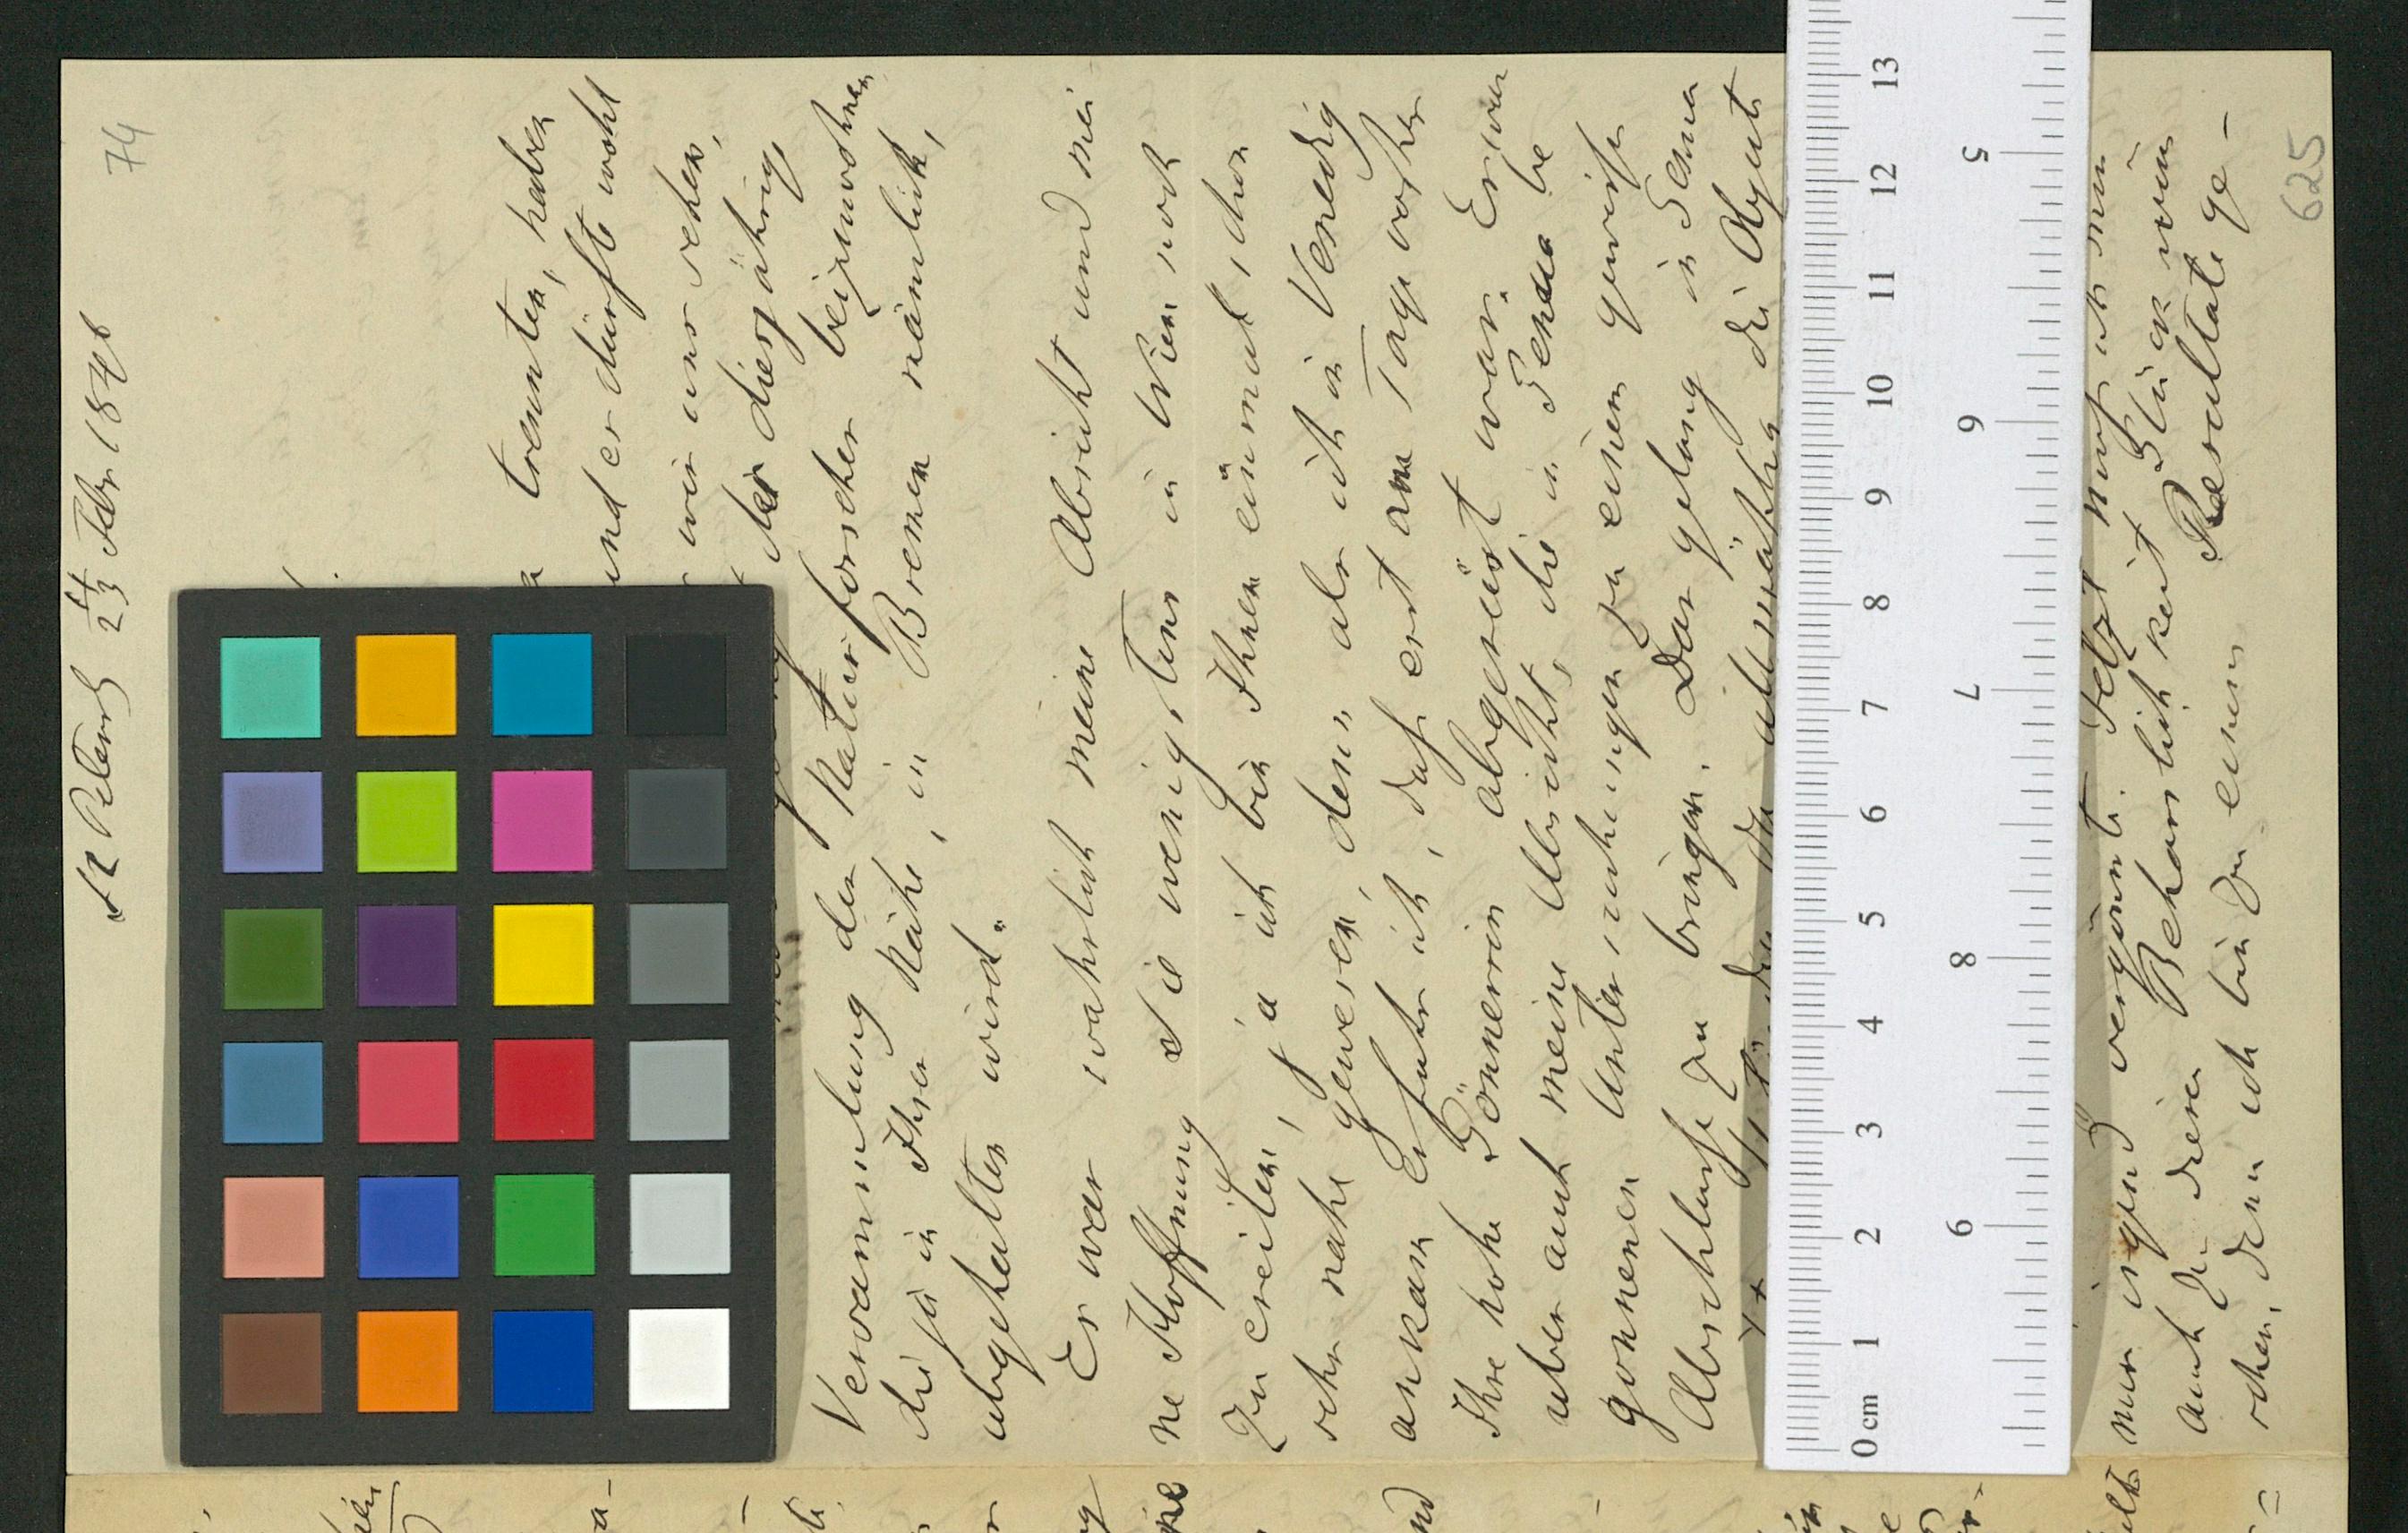 74
St Petersb 24/3 Febr 1846
trennten, haben
und er dürfte wohl
wir uns sehen,
der diesjährige
Versammlung der Naturforscher beizuwohnen
die ja in Ihrer Nähe, in Bremen nämlich,
abgehalten wird.
Es war wahrlich meine Absicht und mei
ne Hoffnung Sie wenigstens in Wien noch
zu ereilen, ja ich bin Ihnen einmal schon
sehr nahe gewesen, denn als ich in Venedig
ankam erfuhr ich, daß erst am Tage vorher
Ihre hohe Gönnerin abgereist war. Es war
aber auch meine Absicht, die in Genua be
gonnenen Untersuchungen zu einem gewissen
Abschlusse zu bringen. Das gelang in Genua
da allmählig die Objecte
nur irgend vergönnte. Jetzt muß ich nun
auch zu dieser Beharrlichkeit Glück wün
schen, denn ich bin zu einem Resultate ge-
625
0 cm 1 2 3 4 5 6 7 8 9 10 11 12 13
5 6 7 8 9